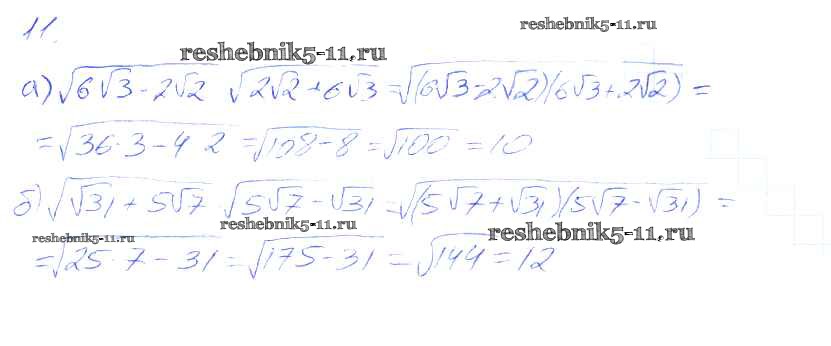 reshebnik5-11.ru
11.
reshebnik5-11.ru
а) √(6√3 - 2√2) √(2√2 + 6√3) = √((6√3 - 2√2)(6√3 + 2√2)) =
= √(36·3 - 4 2) = √(108 - 8) = √100 = 10
б) √(√31 + 5√7) √(5√7 - √31) = √((5√7 + √31)(5√7 - √31)) =
reshebnik5-11.ru
reshebnik5-11.ru
reshebnik5-11.ru
= √(25·7 - 31) = √(175 - 31) = √144 = 12